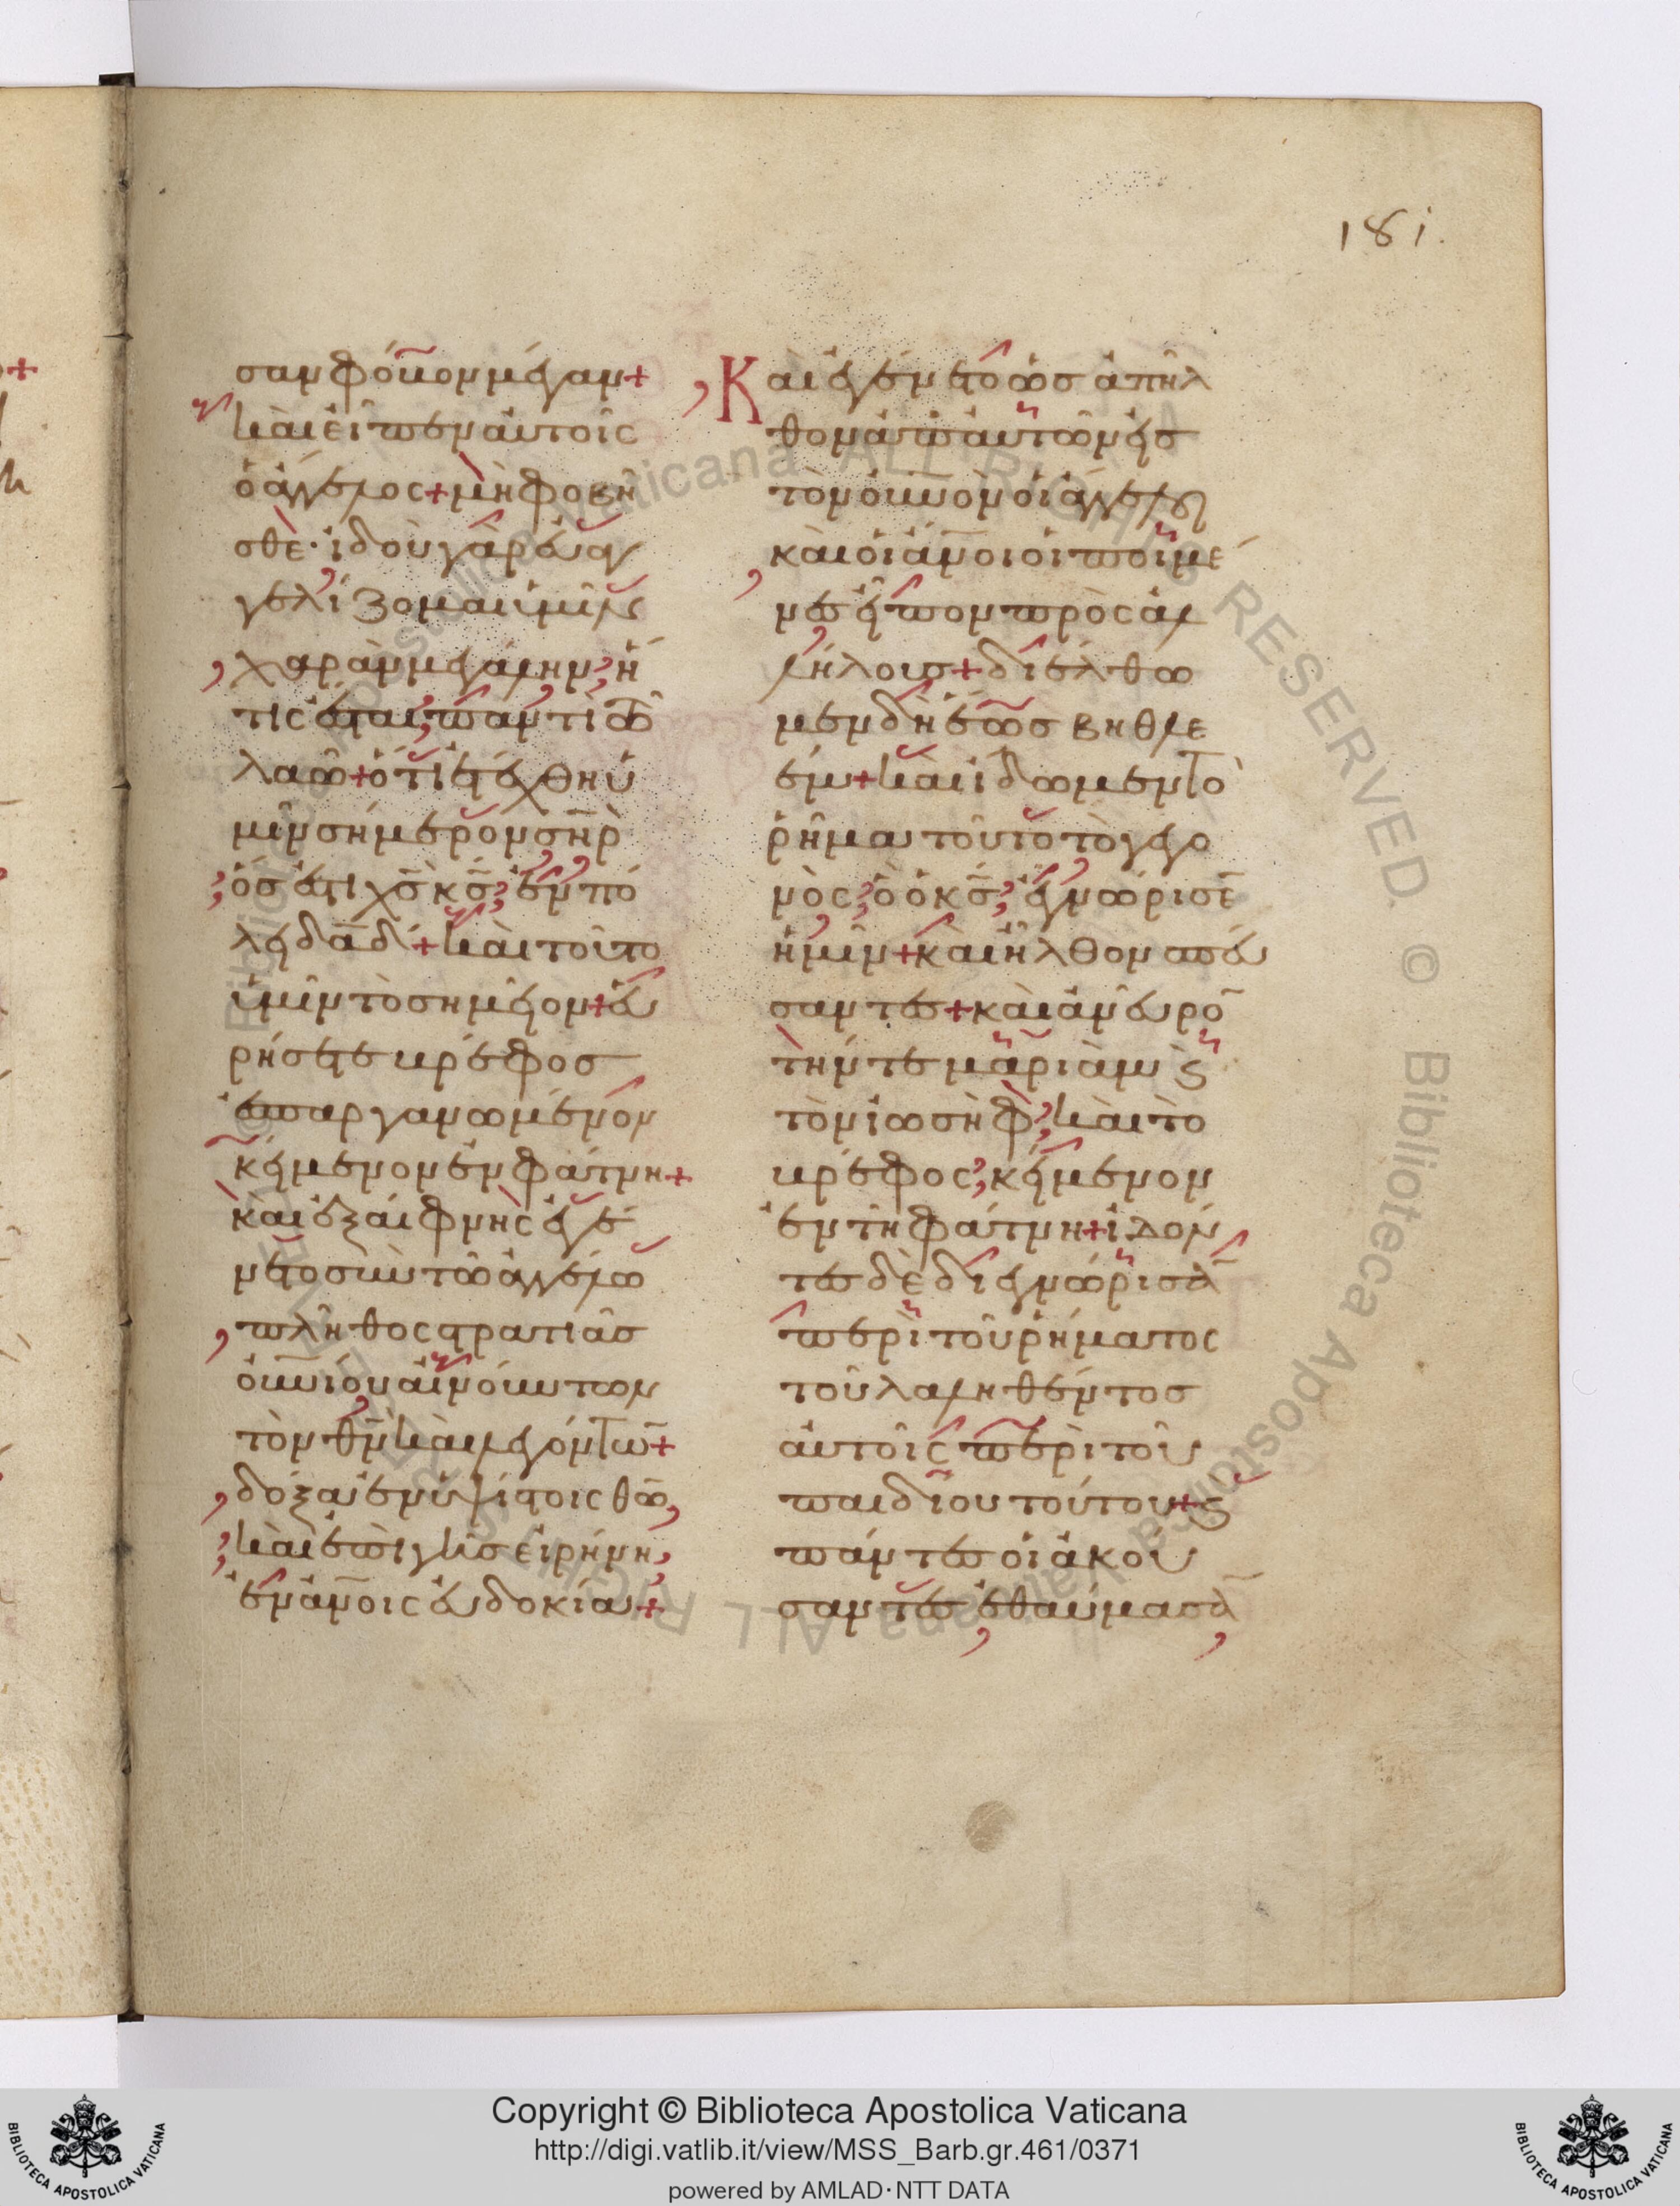 181.
σαν φόβον μέγαν+
καὶ εἶπεν αὐτοῖς
ὁ ἄγγελος+ μὴ φοβεῖ
σθε· ἰδοὺ γὰρ εὐαγ
γελίζομαι ὑμῖν
χαρὰν μεγάλην, ἥ
τις ἔσται παντὶ τῶ
λαῶ+ ὅτι ἐτέχθη ὑ
μῖν σήμερον σ̅η̅ρ̅
ὅς ἐστι χ̅ς̅ κ̅ς̅, ἐν πό
λει δ̅α̅δ̅+ καὶ τοῦτο
ὑμῖν τὸ σημεῖον+ εὑ
ρήσετε βρέφος
ἐσπαργανωμένον
κείμενον ἐν φάτνη+
καὶ ἐξαίφνης ἐγέ
νετο σὺν τῶ ἀγγέλω
πλῆθος στρατιᾶς
ο̅υ̅νίου αἰνούντων
τὸν θ̅ν̅ καὶ λεγόντων+
δόξα ἐν ὑψίστοις θ̅ω̅,
καὶ ἐπὶ γῆς εἰρήνη,
ἐν ἀ̅ν̅οις εὐδοκία+
Καὶ ἐγένετο ὡς ἀπῆλ
θον ἀπ' αὐτῶν εἰς
τὸν ο̅υ̅νὸν οἱ ἄγγελοι
καὶ οἱ ἄ̅ν̅οι οἱ ποιμέ
νες εἶπον πρὸς ἀλ
λήλους+ διέλθω
μεν δὴ ἕως βηθλε
έμ+ καὶ ἴδωμεν τὸ
ῥῆμα τοῦτο τὸ γεγο
νὸς, ὃ ὁ κ̅ς̅, ἐγνώρισεν
ἡμῖν+ καὶ ἦλθον σπεύ
σαντες+ καὶ ἀνεῦρον
τήν τε μαριὰμ καὶ
τὸν ἰωσὴφ, καὶ τὸ
βρέφος, κείμενον
ἐν τῆ φάτνη+ ἰδόν
τες δὲ διεγνώρισαν
περὶ τοῦ ῥήματος
τοῦ λαληθέντος
αὐτοῖς περὶ τοῦ
παιδίου τούτου+ καὶ
πάντες οἱ ἀκού
σαντες ἐθαύμασαν
Copyright © Biblioteca Apostolica Vaticana
http://digi.vatlib.it/view/MSS_Barb.gr.461/0371
powered by AMLAD·NTT DATA